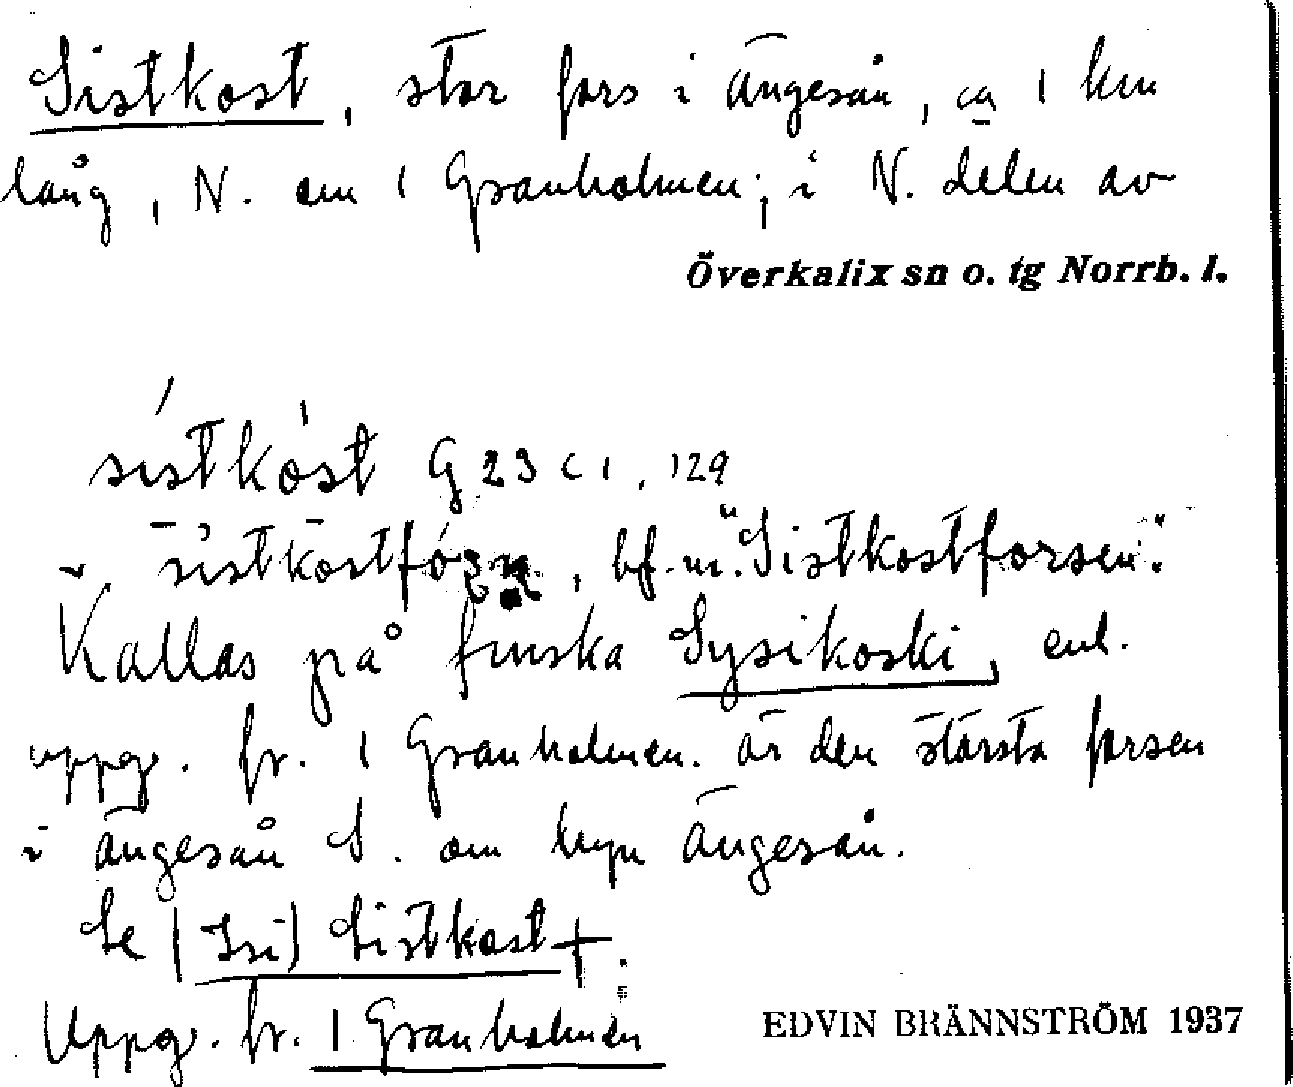 Sistkost, stor fors i Ängesån, ca 1 km
lång, N. om 1 Granholmen; i N. delen av
Överkalix sn o. tg Norrb. l.
sístkòst G 23 c 1, 129
sistkostfórsn, bf. m. "Sistkostforsen".
Kallas på finska Sysikoski, enl.
uppg. fr. 1 Granholmen. är den största forsen
i Ängesån S. om byn Ängesån.
Se (Isi) Sistkost +.
Uppg. fr. 1 Granholmen
EDVIN BRÄNNSTRÖM 1937